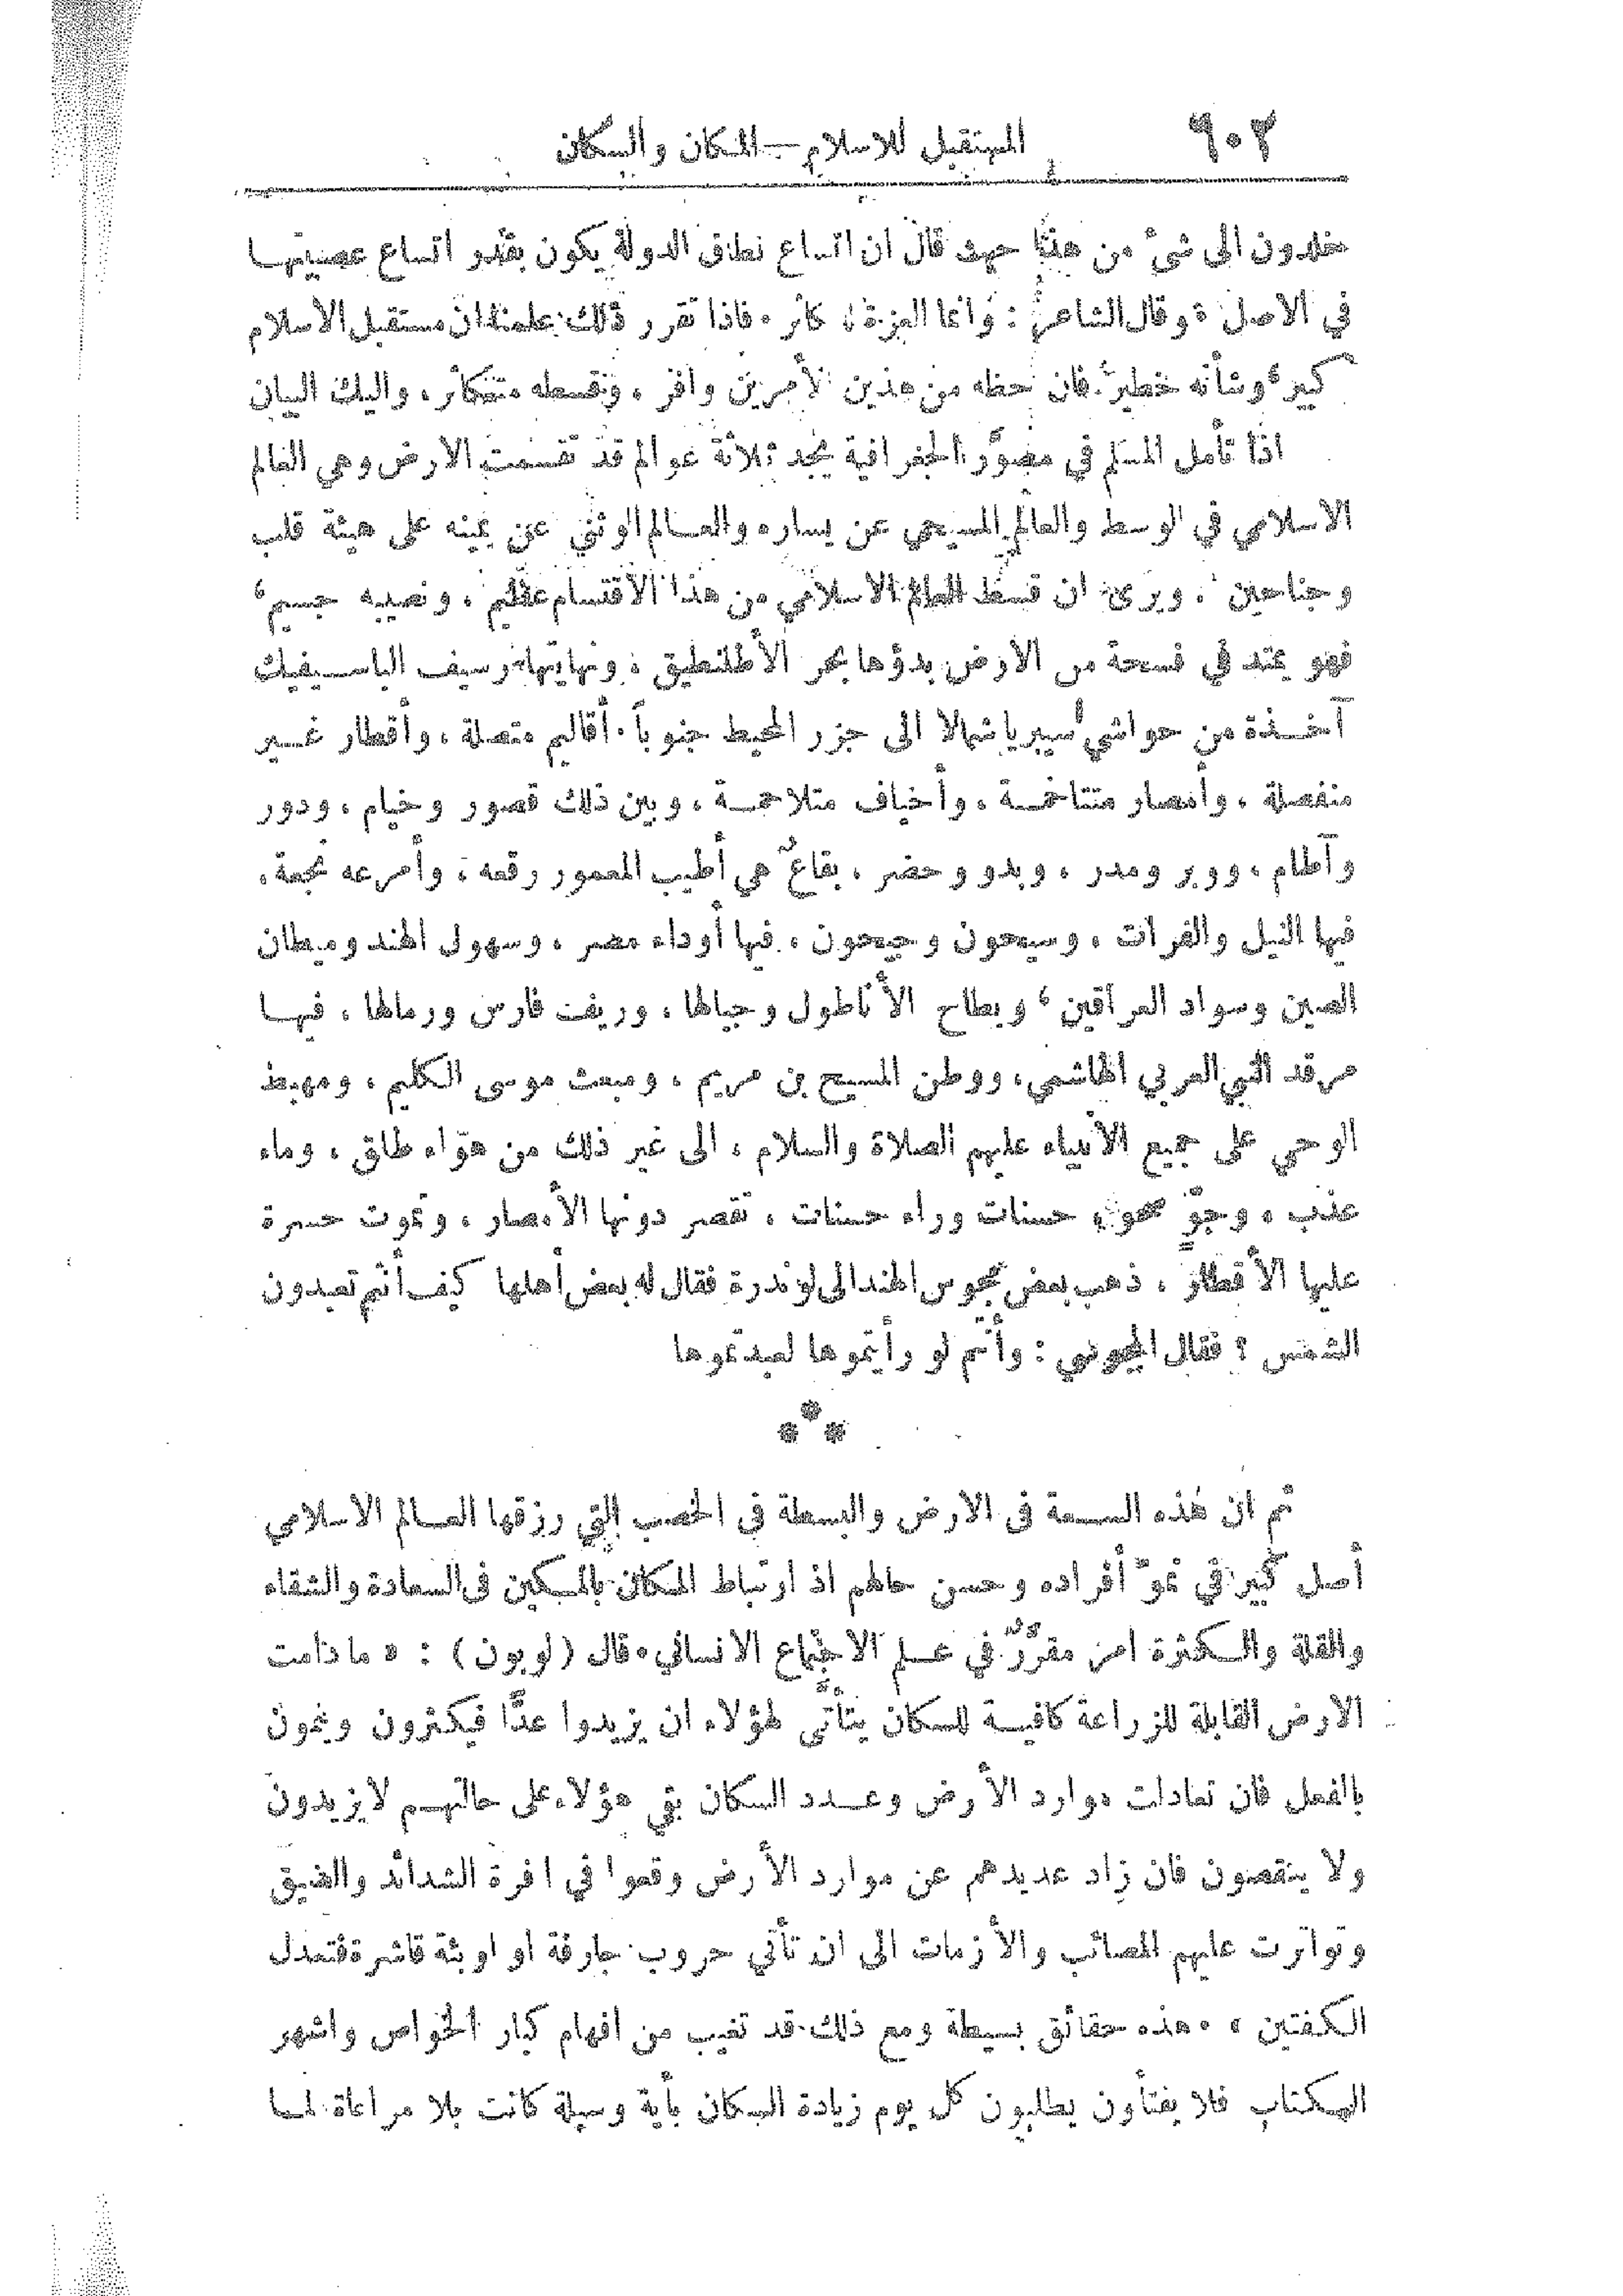 ٩٠٢ المستقبل للاسلام — المكان والسكان
خلدون الى شئ من هذا حيث قال ان اتساع نطاق الدولة يكون بقدر اتساع عصبيتها
في الاصل ، وقال الشاعر : وانما العزة للكاثر . فاذا تقرر ذلك علمنا ان مستقبل الاسلام
كبير، وشأنه خطير. فان حظه من هذين الأمرين وافر ، وقسطه متكاثر ، واليك البيان
اذا تأمل المسلم في مصوَّر الجغرافية يجد ثلاثة عوالم قد تقسمت الارض وهي العالم
الاسلامي في الوسط والعالم المسيحي عن يساره والعالم الوثني عن يمينه على هيئة قلب
وجناحين ، ويرى ان قسط العالم الاسلامي من هذا الاقتسام عظيم ، ونصيبه جسيم ،
فهو يمتد في فسحة من الارض بدؤها بحر الأطلنطيق ، ونهايتها رسيف الباسيفيك
آخذة من حواشي سيبريا شمالا الى جزر المحيط جنوباً . أقاليم متصلة ، وأقطار غير
منفصلة ، وأمصار متتاخمة ، وأخياف متلاحمة ، وبين ذلك قصور وخيام ، ودور
وآطام ، ووبر ومدر ، وبدو وحضر ، بقاعٌ هي أطيب المعمور رقعه ، وأمرعه نجعة ،
فيها النيل والفرات ، وسيحون وجيحون ، فيها أوداء مصر ، وسهول الهند وميطان
الصين وسواد العراقين ، وبطاح الأناطول وجبالها ، وريف فارس ورمالها ، فيها
مرقد النبي العربي الهاشمي ، ووطن المسيح بن مريم ، ومبعث موسى الكليم ، ومهبط
الوحي على جميع الأنبياء عليهم الصلاة والسلام ، الى غير ذلك من هواء طلق ، وماء
عذب ، وجوٍّ صحو ، حسنات وراء حسنات ، تقصر دونها الأمصار ، وتموت حسرة
عليها الأقطار ، ذهب بعض مجوس الهند الى لوندرة فقال له بعض أهلها كيف أنتم تعبدون
الشمس ؟ فقال المجوسي : وأنتم لو رأيتموها لعبدتموها
***
ثم ان هذه السعة فى الارض والبسطة فى الخصب التي رزقها العالم الاسلامي
أصل كبير في نموّ أفراده وحسن حالهم اذ ارتباط المكان بالمكين فى السعادة والشقاء
والقلة والكثرة امر مقرّرٌ في علم الاجتماع الانساني . قال (لوبون) : « ما دامت
الارض القابلة للزراعة كافية للسكان يتأتّى لهؤلاء ان يزيدوا عدًّا فيكثرون وينمون
بالفعل فان تعادلت موارد الأرض وعدد السكان بقي هؤلاء على حالتهم لا يزيدون
ولا ينقصون فان زاد عديدهم عن موارد الأرض وقعوا في افرة الشدائد والضيق
وتواترت عليهم المصائب والأزمات الى ان تأتي حروب جارفة او اوبئة قاشرة فتعدل
الكفتين » . هذه حقائق بسيطة ومع ذلك قد تغيب من افهام كبار الخواص واشهر
الكتاب فلا يفتأون يطلبون كل يوم زيادة السكان بأية وسيلة كانت بلا مراعاة لما